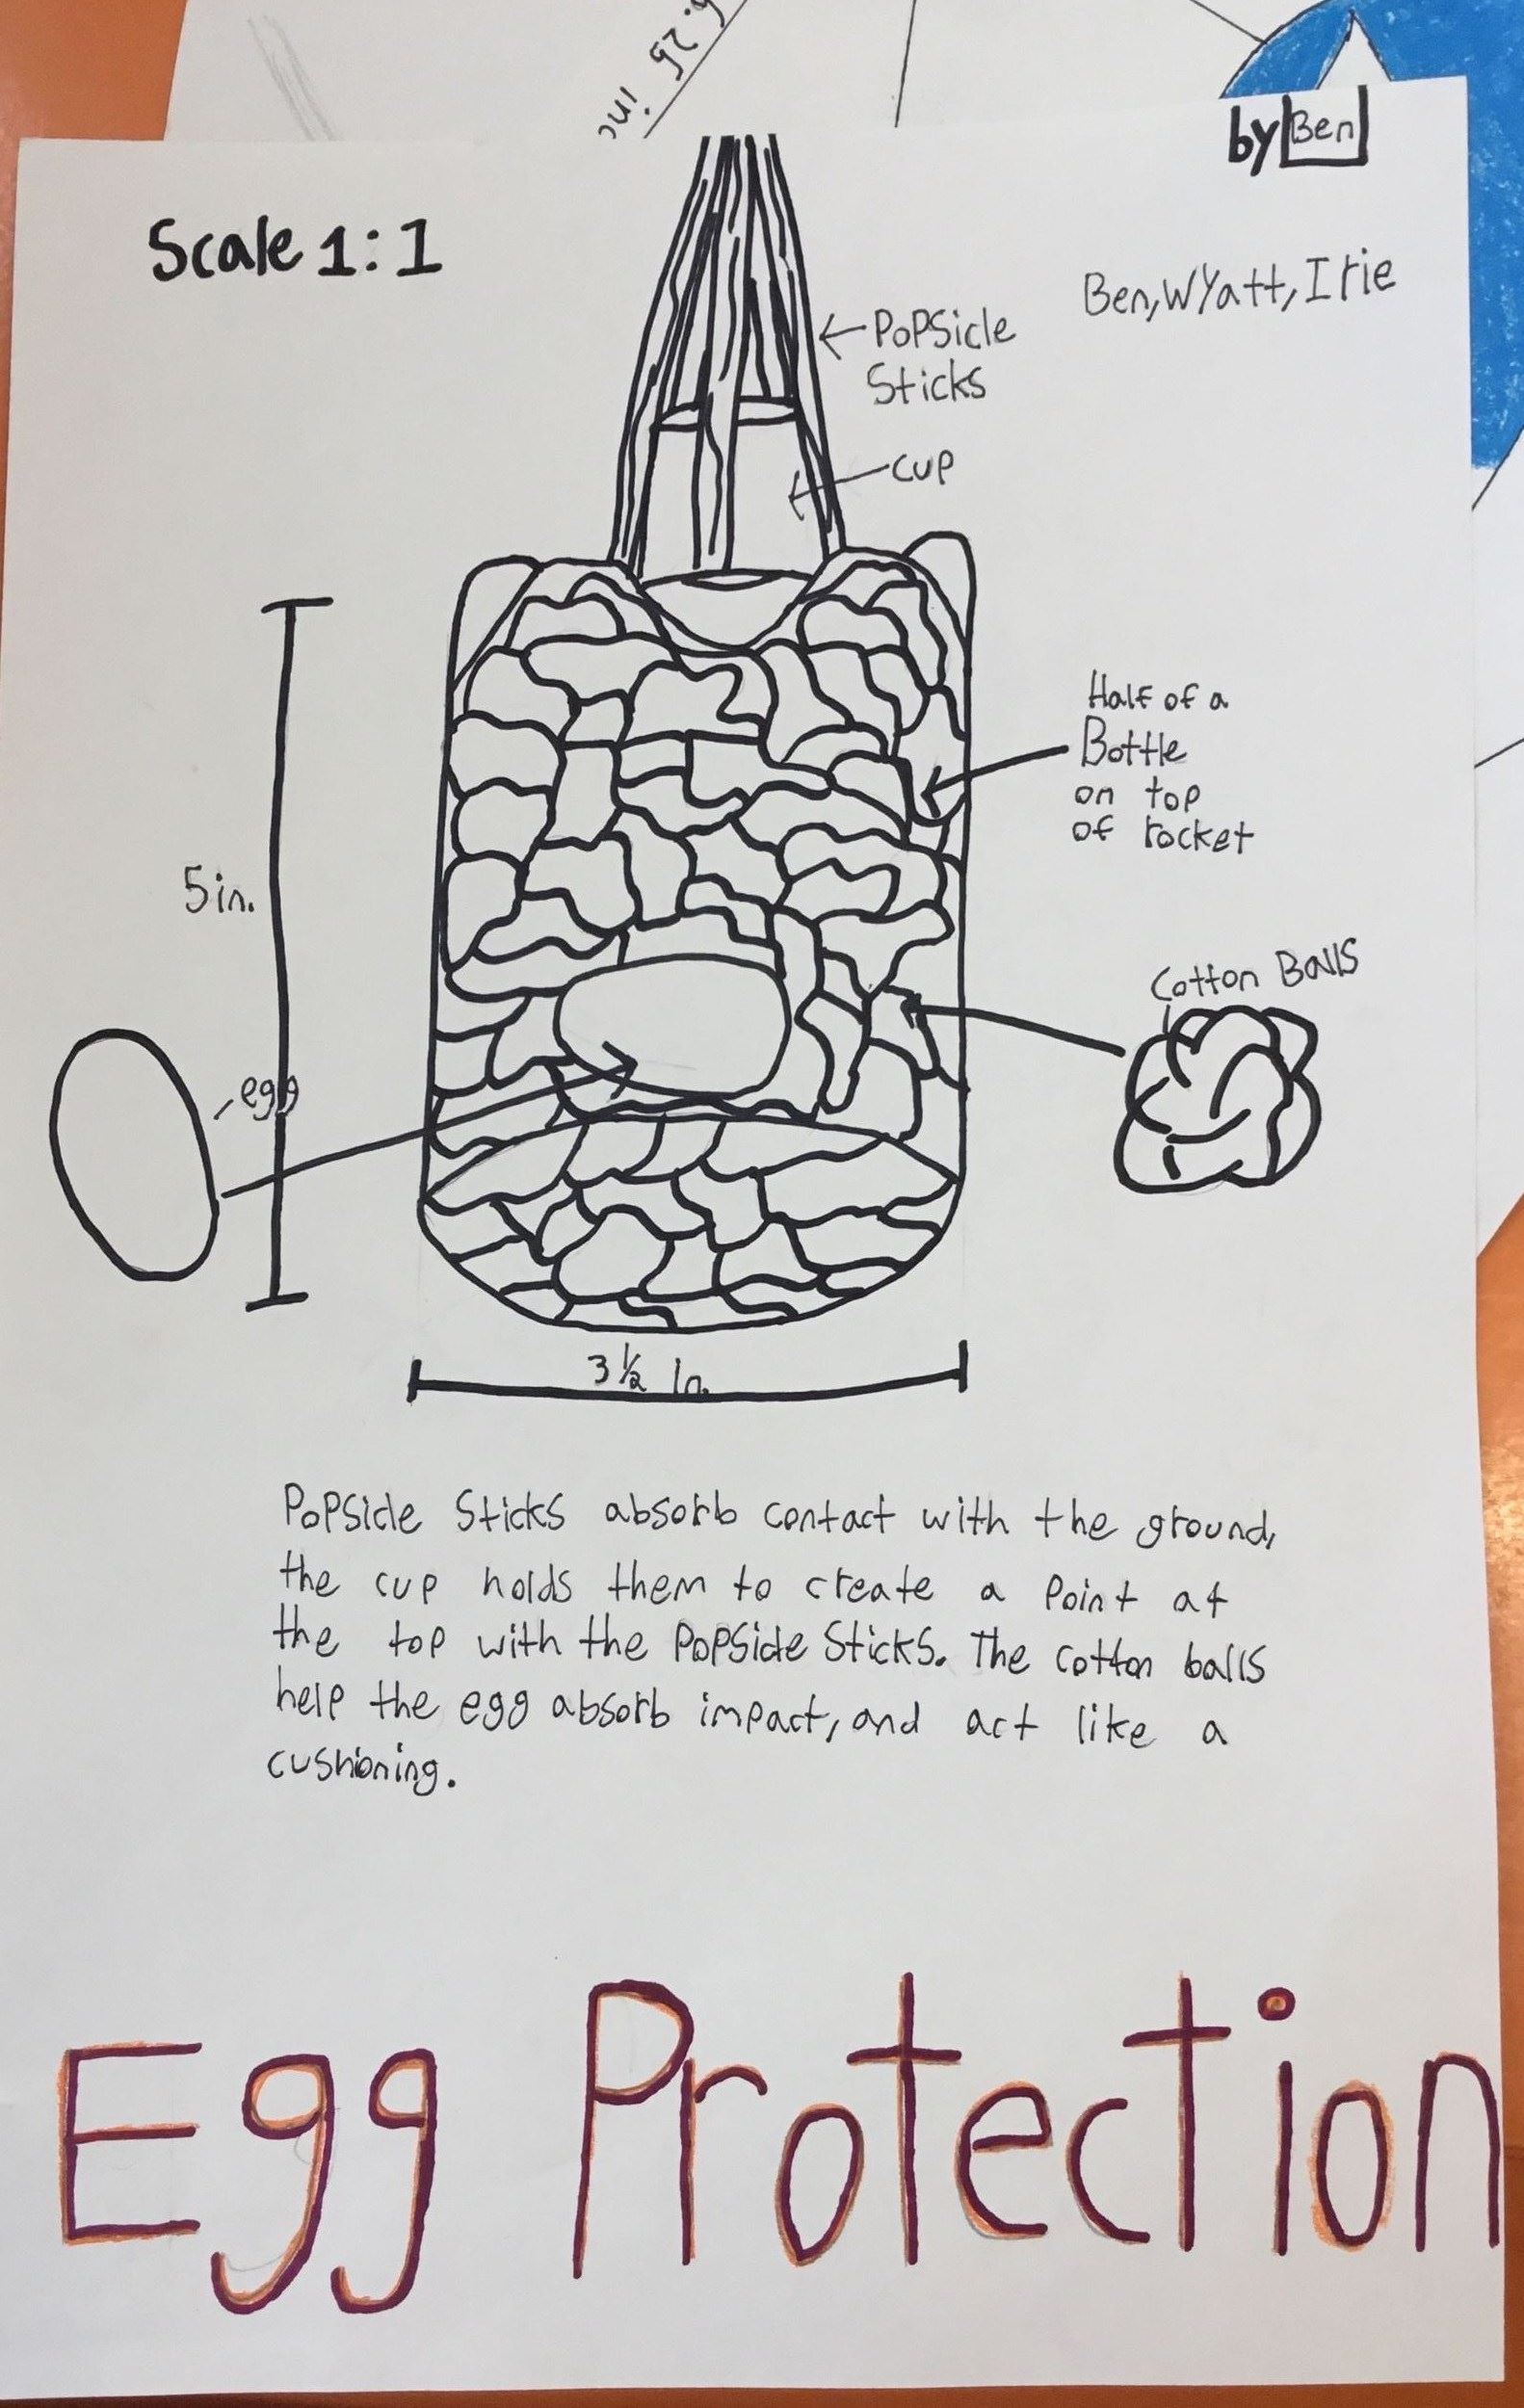 6.25 inc
by Ben
Scale 1:1
Ben, Wyatt, Irie
Popsicle
Sticks
cup
Half of a
Bottle
on top
of rocket
5in.
Cotton Balls
egg
3 1/2 In.
Popsicle Sticks absorb contact with the ground,
the cup holds them to create a Point at
the top with the Popsicle Sticks. The cotton balls
help the egg absorb impact, and act like a
cushioning.
Egg Protection